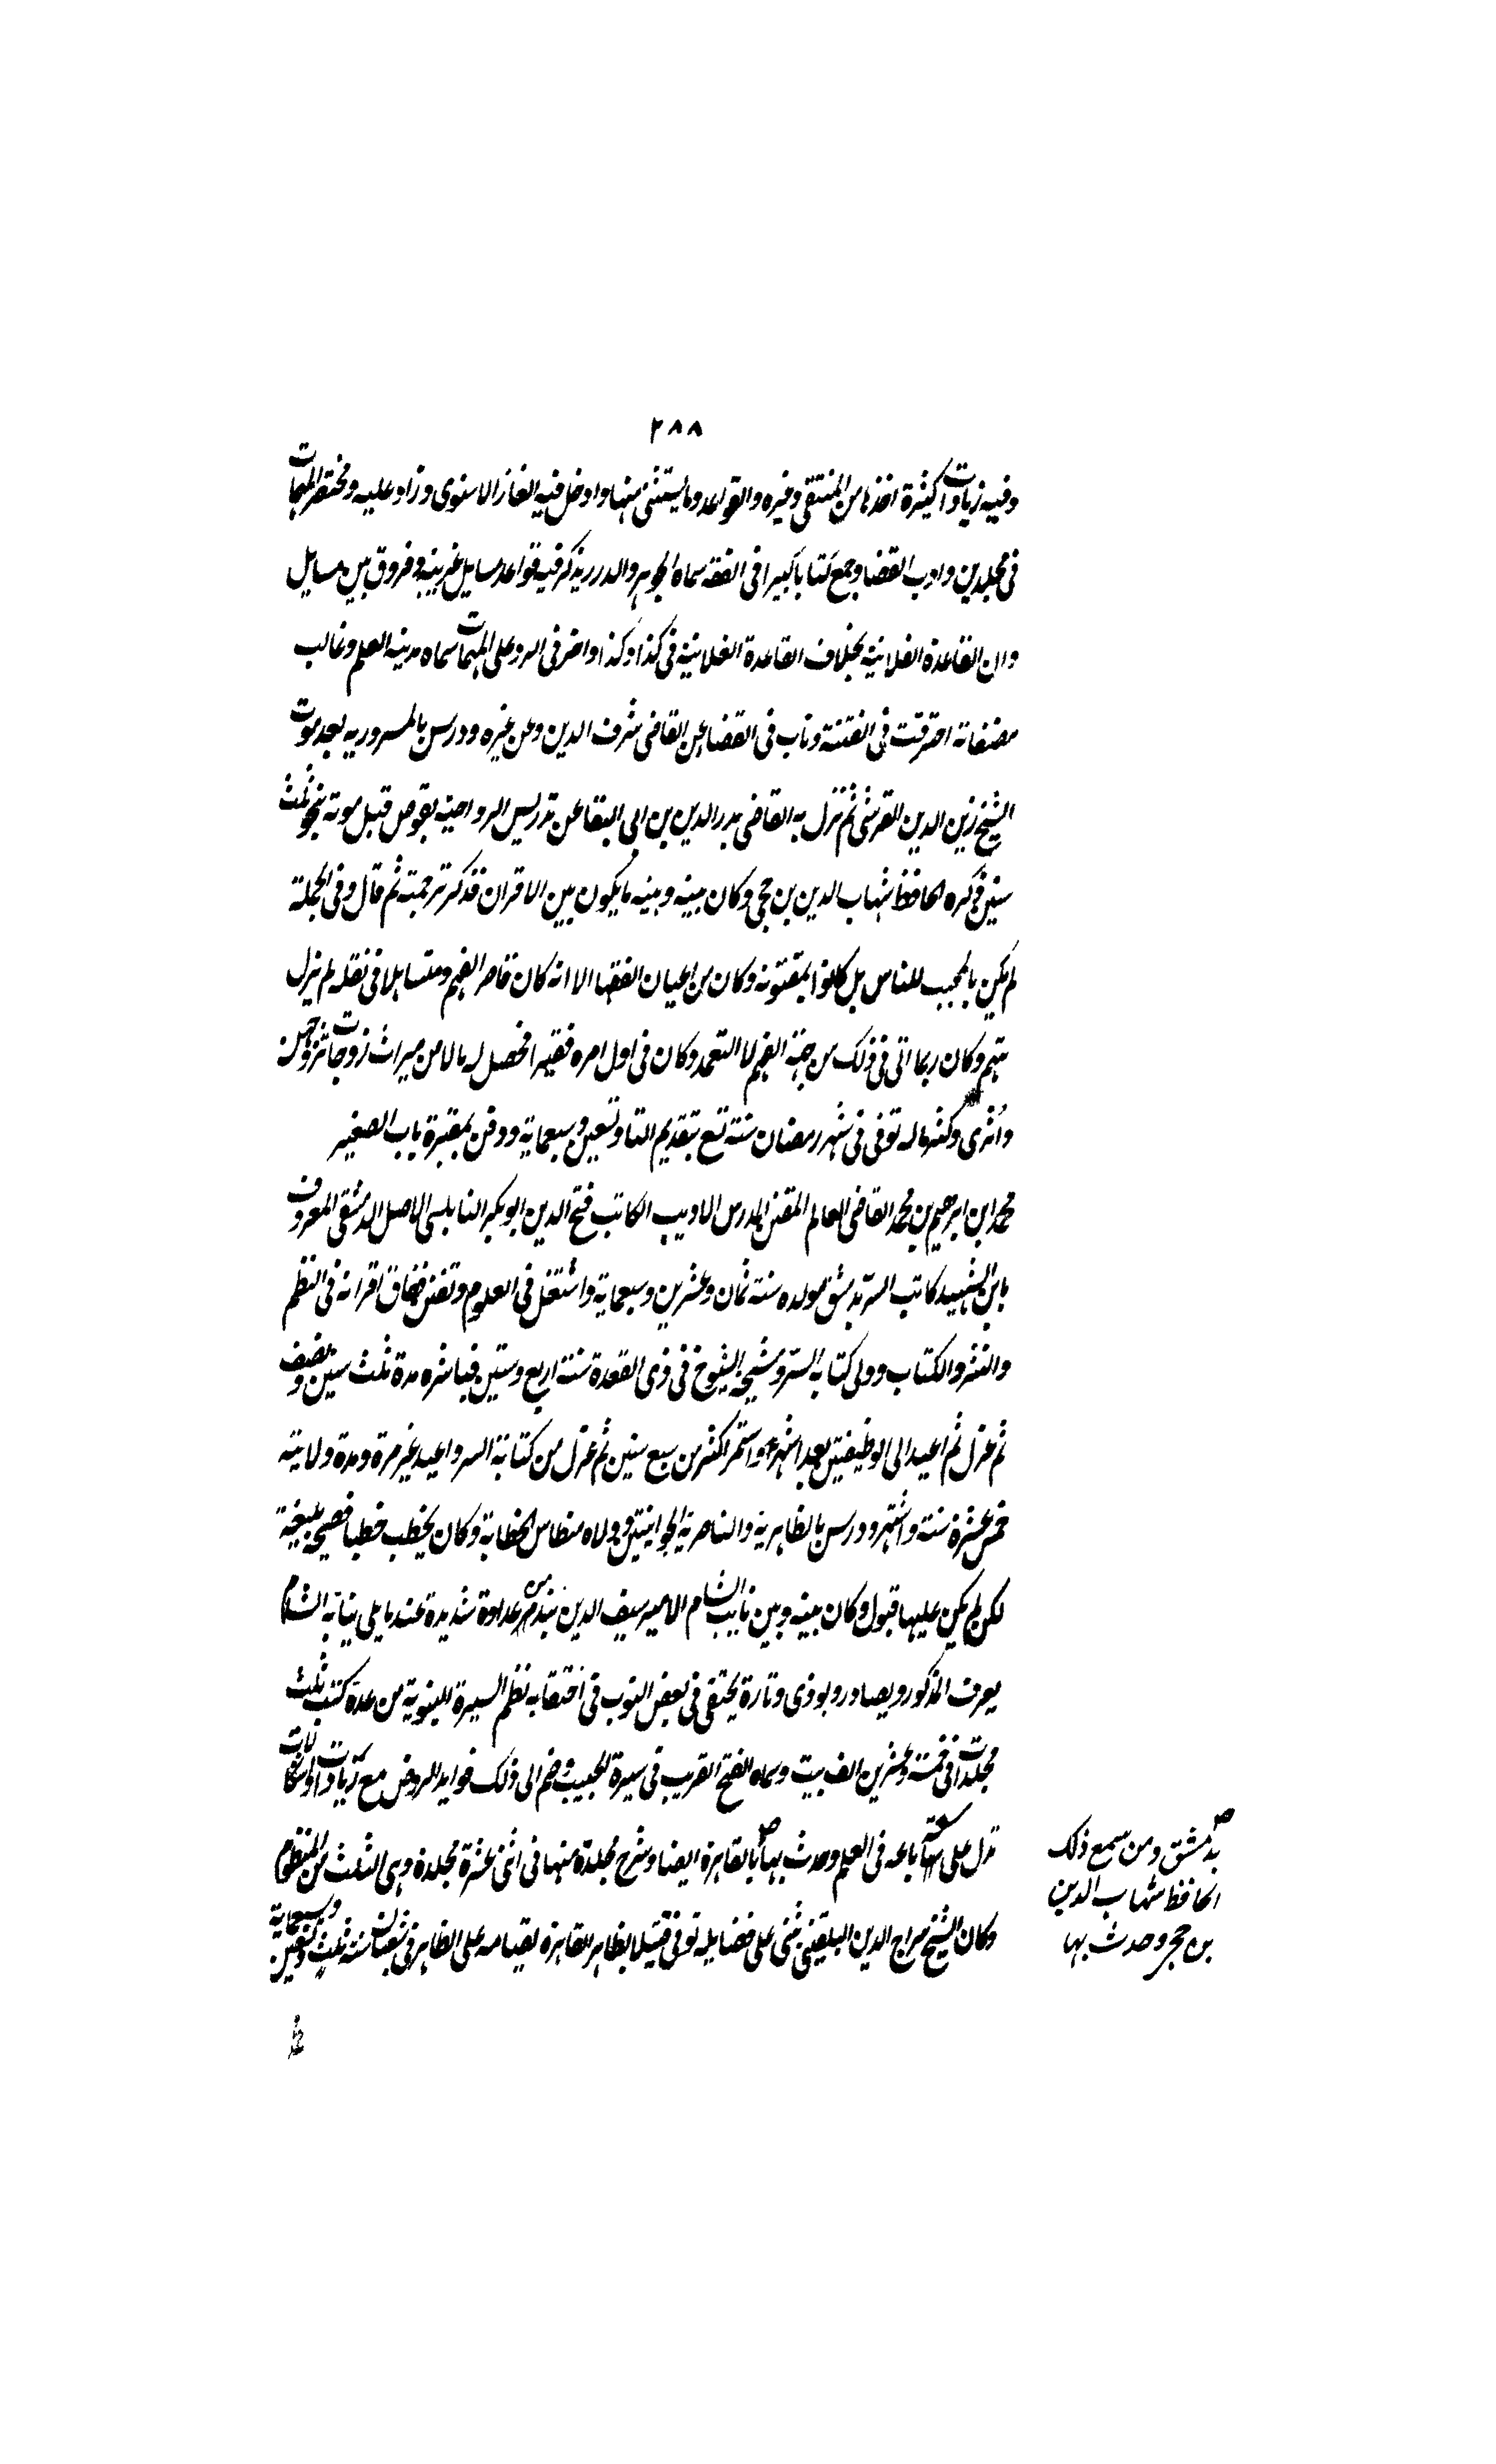 ٢٨٨
وفيه زيادات كثيرة اخذها من المنتقى وغيره والقواعد وما يستثنى منها وادخل فيه الغاز الاسنوى وزاد عليه ومختصر المهمات
فى مجلدين وادب القضا وجمع كتابا كبيرا فى الفقه سماه الجوهر والدرر يذكر فيه قواعد مسايل غريبة وفروق بين مسايل
وان القاعدة الفلانية بخلاف القاعدة الفلانية فى كذا وكذا واخر فى الرد على المهمات سماه مدينه العلم وغالب
مصنفاته احترقت فى الفتنة وناب فى القضا عن القاضى شرف الدين وعن غيره ودرس بالمسروريه بعد موت
الشيخ زين الدين القرشى ثم نزل به القاضى بدر الدين بن ابى البقا عن تدريس الرواحية بقوص قبل موته بنحو ثلث
سنين ذكره الحافظ شهاب الدين بن حجى وكان بينه وبينه ما يكون بين الاقران فذكر ترجمته ثم قال وفى الجملة
لم يكن بالمحبب للناس بل كانوا يمقتونه وكان من اعيان الفقها الا انه كان قاصر الفهم ومتساهلا فى نقله لم يزل
يتهم وكان ربما اتى فى ذلك من جهة الفهم لا التعمد وكان فى اول امره فقيرا فحصل له مالا من ميراث زوجات تزوجهن
واثرى وكثر ماله توفى فى شهر رمضان سنة تسع بتقديم التا وتسعين وسبعماية ودفن بمقبرة باب الصغير
محمد ابن ابرهيم بن محمد القاضى العالم المفنن المدرس الاديب الكاتب فتح الدين ابو بكر النابلسى الاصل الدمشقى المعروف
بابن الشهيد كاتب السرّ بدمشق مولده سنة ثمان وعشرين وسبعماية واشتغل فى العلوم وتفنن ففاق اقرانه فى النظم
والنثر والكتاب وولى كتابة السرّ ومشيخة الشيوخ فى ذى القعدة سنة اربع وستين فباشره مدة ثلث سنين ونصف
ثم عزل ثم اعيد الى الوظيفتين بعد اشهر واستمر اكثر من سبع سنين ثم عزل من كتابة السر واعيد غير مرة ومدة ولايته
خمس عشرة سنة واشتهر ودرس بالظاهرية والناصرية الجوانيتين وولاه منطاس الخطابة وكان يخطب خطبا فصيحة بليغة
لكن لم يكن عليها قبول وكان بينه وبين نايب الشام الامير سيف الدين بيدمر عداوة شديدة عند ما يلى نيابة الشام
يعرف المذكور ويصادر ويوذى وتارة يختفى فى بعض النوب فى اختفايه نظم السيرة النبوية من عدة كتب ثلث
مجلدات فى خمسة وعشرين الف بيت وسماه الفتح القريب فى سيرة الحبيب وضم الى ذلك فوايد الروض مع زيادات واشكالات
تدل على سعة باعه فى العلم وحدث بها بالقاهرة ايضا وشرح مجلدة منها فى اثنى عشرة مجلدة وهى الثلث من المنظوم
وكان الشيخ سراج الدين البلقينى يثنى على فضايله توفى قتيلا بظاهر القاهرة لقيامه على الظاهر فى شعبان سنة ثلث وتسعين وسبعماية
بدمشق ومن سمع ذلك
الحافظ شهاب الدين
بن حجر وحدث بها